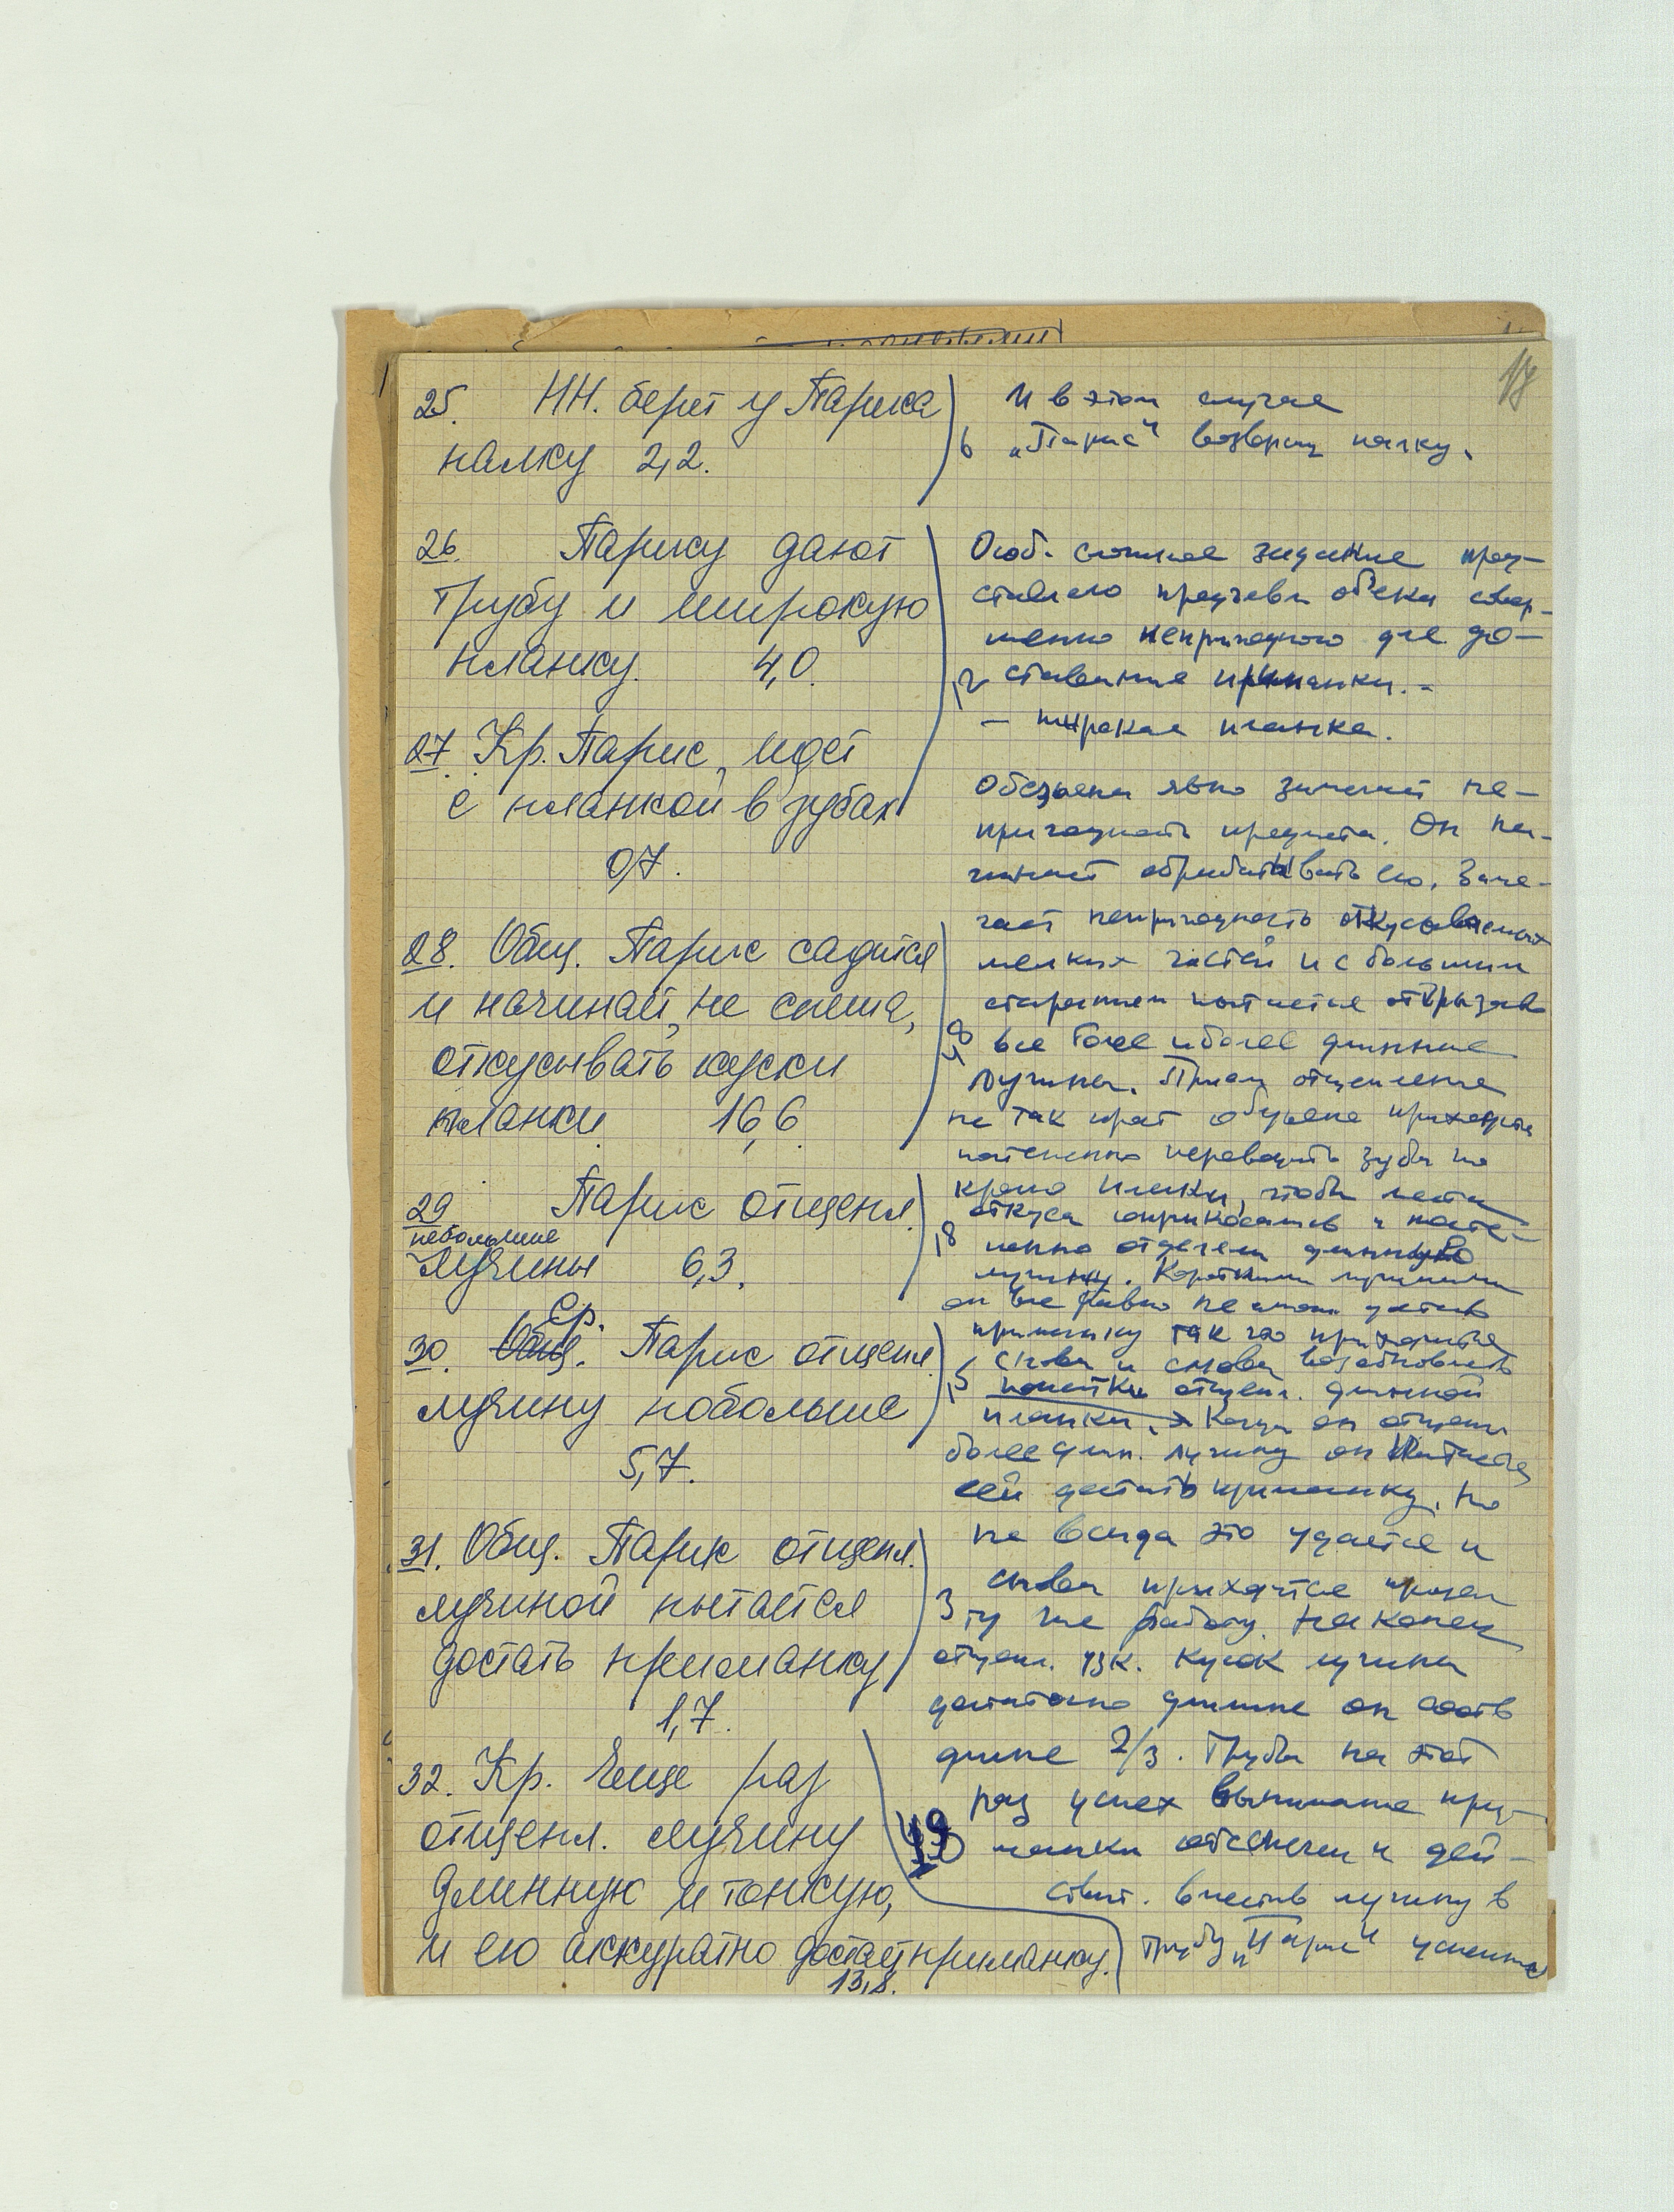 17
25. НН. берет у Париса
палку 2,2.
26. Парису дают
трубу и широкую
планку. 4,0.
27. Кр. Парис, идет
с планкой в зубах
0,7.
28. Общ. Парис садится
и начинает, не спеша,
откусывать куски
планки 16,6
29 Парис отщепл.
небольшие
лучины 6,3.
Ср.
30. Общ. Парис отщепил
лучину побольше
5,7.
31. Общ. Парис отщепл.
лучиной пытается
достать приманку
1,7.
32. Кр. Еще раз
отщепл. лучину
длинную и тонкую,
и ею аккуратно достает приманку.
13,8.
И в этом случае
6 „Парис" возвращ палку.
Особ. сложное задание пред-
ставляло предъявл обез совер-
шенно непригодного для до-
12 ставания приманки. -
— широкая планка.
Обезьяна явно замечает не-
пригодность предмета. Он на-
чинает обрабатывать его. Заме-
чает непригодность откусываемых
мелких частей и с большим
старанием пытается отгрызать
48 все более и более длинные
лучины. Прием отщепления
не так прост обезьяне приходится
постепенно переводить зубы по
краю планки, чтобы места
откуса соприкасались и посте-
18 пенно отделяли длинную
лучину. Короткими лучинами
он все равно не может достать
приманку так что приходится
снова и снова возобновлять
15 попытки отщепл. длинной
планки. Когда он отщепил
более длин. лучину он пытается
ей достать приманку. Но
не всегда это удается и
снова приходится
3 ту же работу. Наконец
отщепл. узк. кусок лучины
достаточно длинные он соотв
длине 2/3. Трубы на этот
раз успех вынимания при-
49 манки обеспечен и дей-
ствит. вставив лучину в
трубу „Парис" успешно